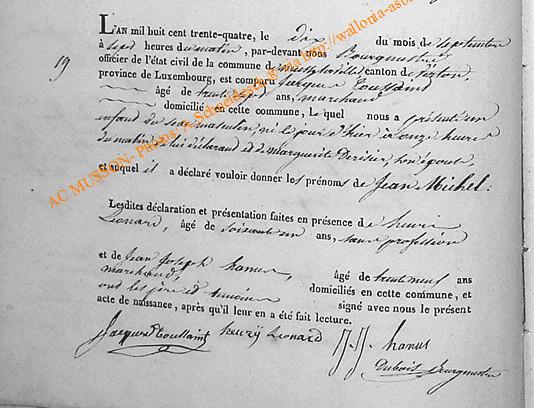 19
L'AN mil huit cent trente-quatre, le dix du mois de septembre
à sept heures du matin, par-devant nous Bourgmestre
officier de l'état civil de la commune de canton de
province de Luxembourg, est comparu Jacques Toussaint
âgé de trente sept ans, marchand
domicilié en cette commune, Lequel nous a présenté un
enfant du sexe masculin, né le jour d'hier à onze heures
du matin de lui déclarant et de marguerite son épouse
et auquel il a déclaré vouloir donner les prénoms de Jean Michel.
Lesdites déclaration et présentation faites en présence de henri
Léonard, âgé de soixante un ans, sans profession
et de Jean Joseph hanus, âgé de trente neuf ans
marchand, domiciliés en cette commune, et
ont les père et témoins signé avec nous le présent
acte de naissance, après qu'il leur en a été fait lecture.
Jacques Toussaint henry Leonard J. J. hanus
Dubois Bourgmestre
AC MUSSON- Photos A. Schneiders &
via http://wallonia-aso